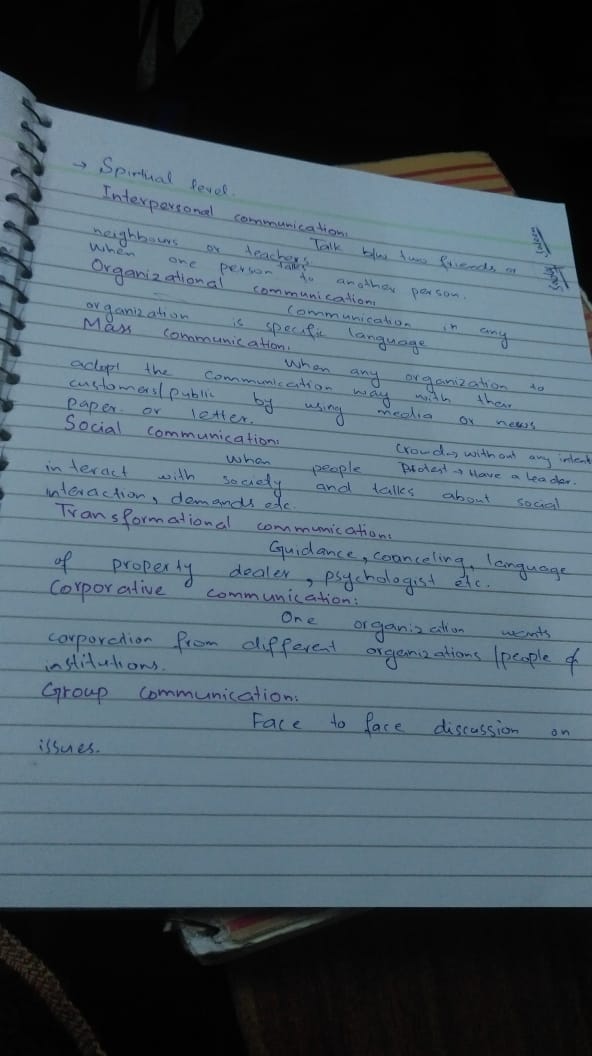 → Spiritual level.
Interpersonal communication:
Talk b/w two friends or
neighbours or teachers.
When one person talks to another person.
Organizational communication:
Communication in any
organization is specific language
Mass communication:
When any organization to
adept the communication way with their
customers/public by using media or news
paper or letter.
Social communication:
Crowd→ without any intent
When people Protest → Have a leader.
interact with society and talks about social
interaction, demands etc.
Transformational communication:
Guidance, counceling, language
of property dealer, psychologist etc.
Corporative communication:
One organization wants
corporation from different organizations/people &
institutions.
Group communication:
Face to face discussion on
issues.